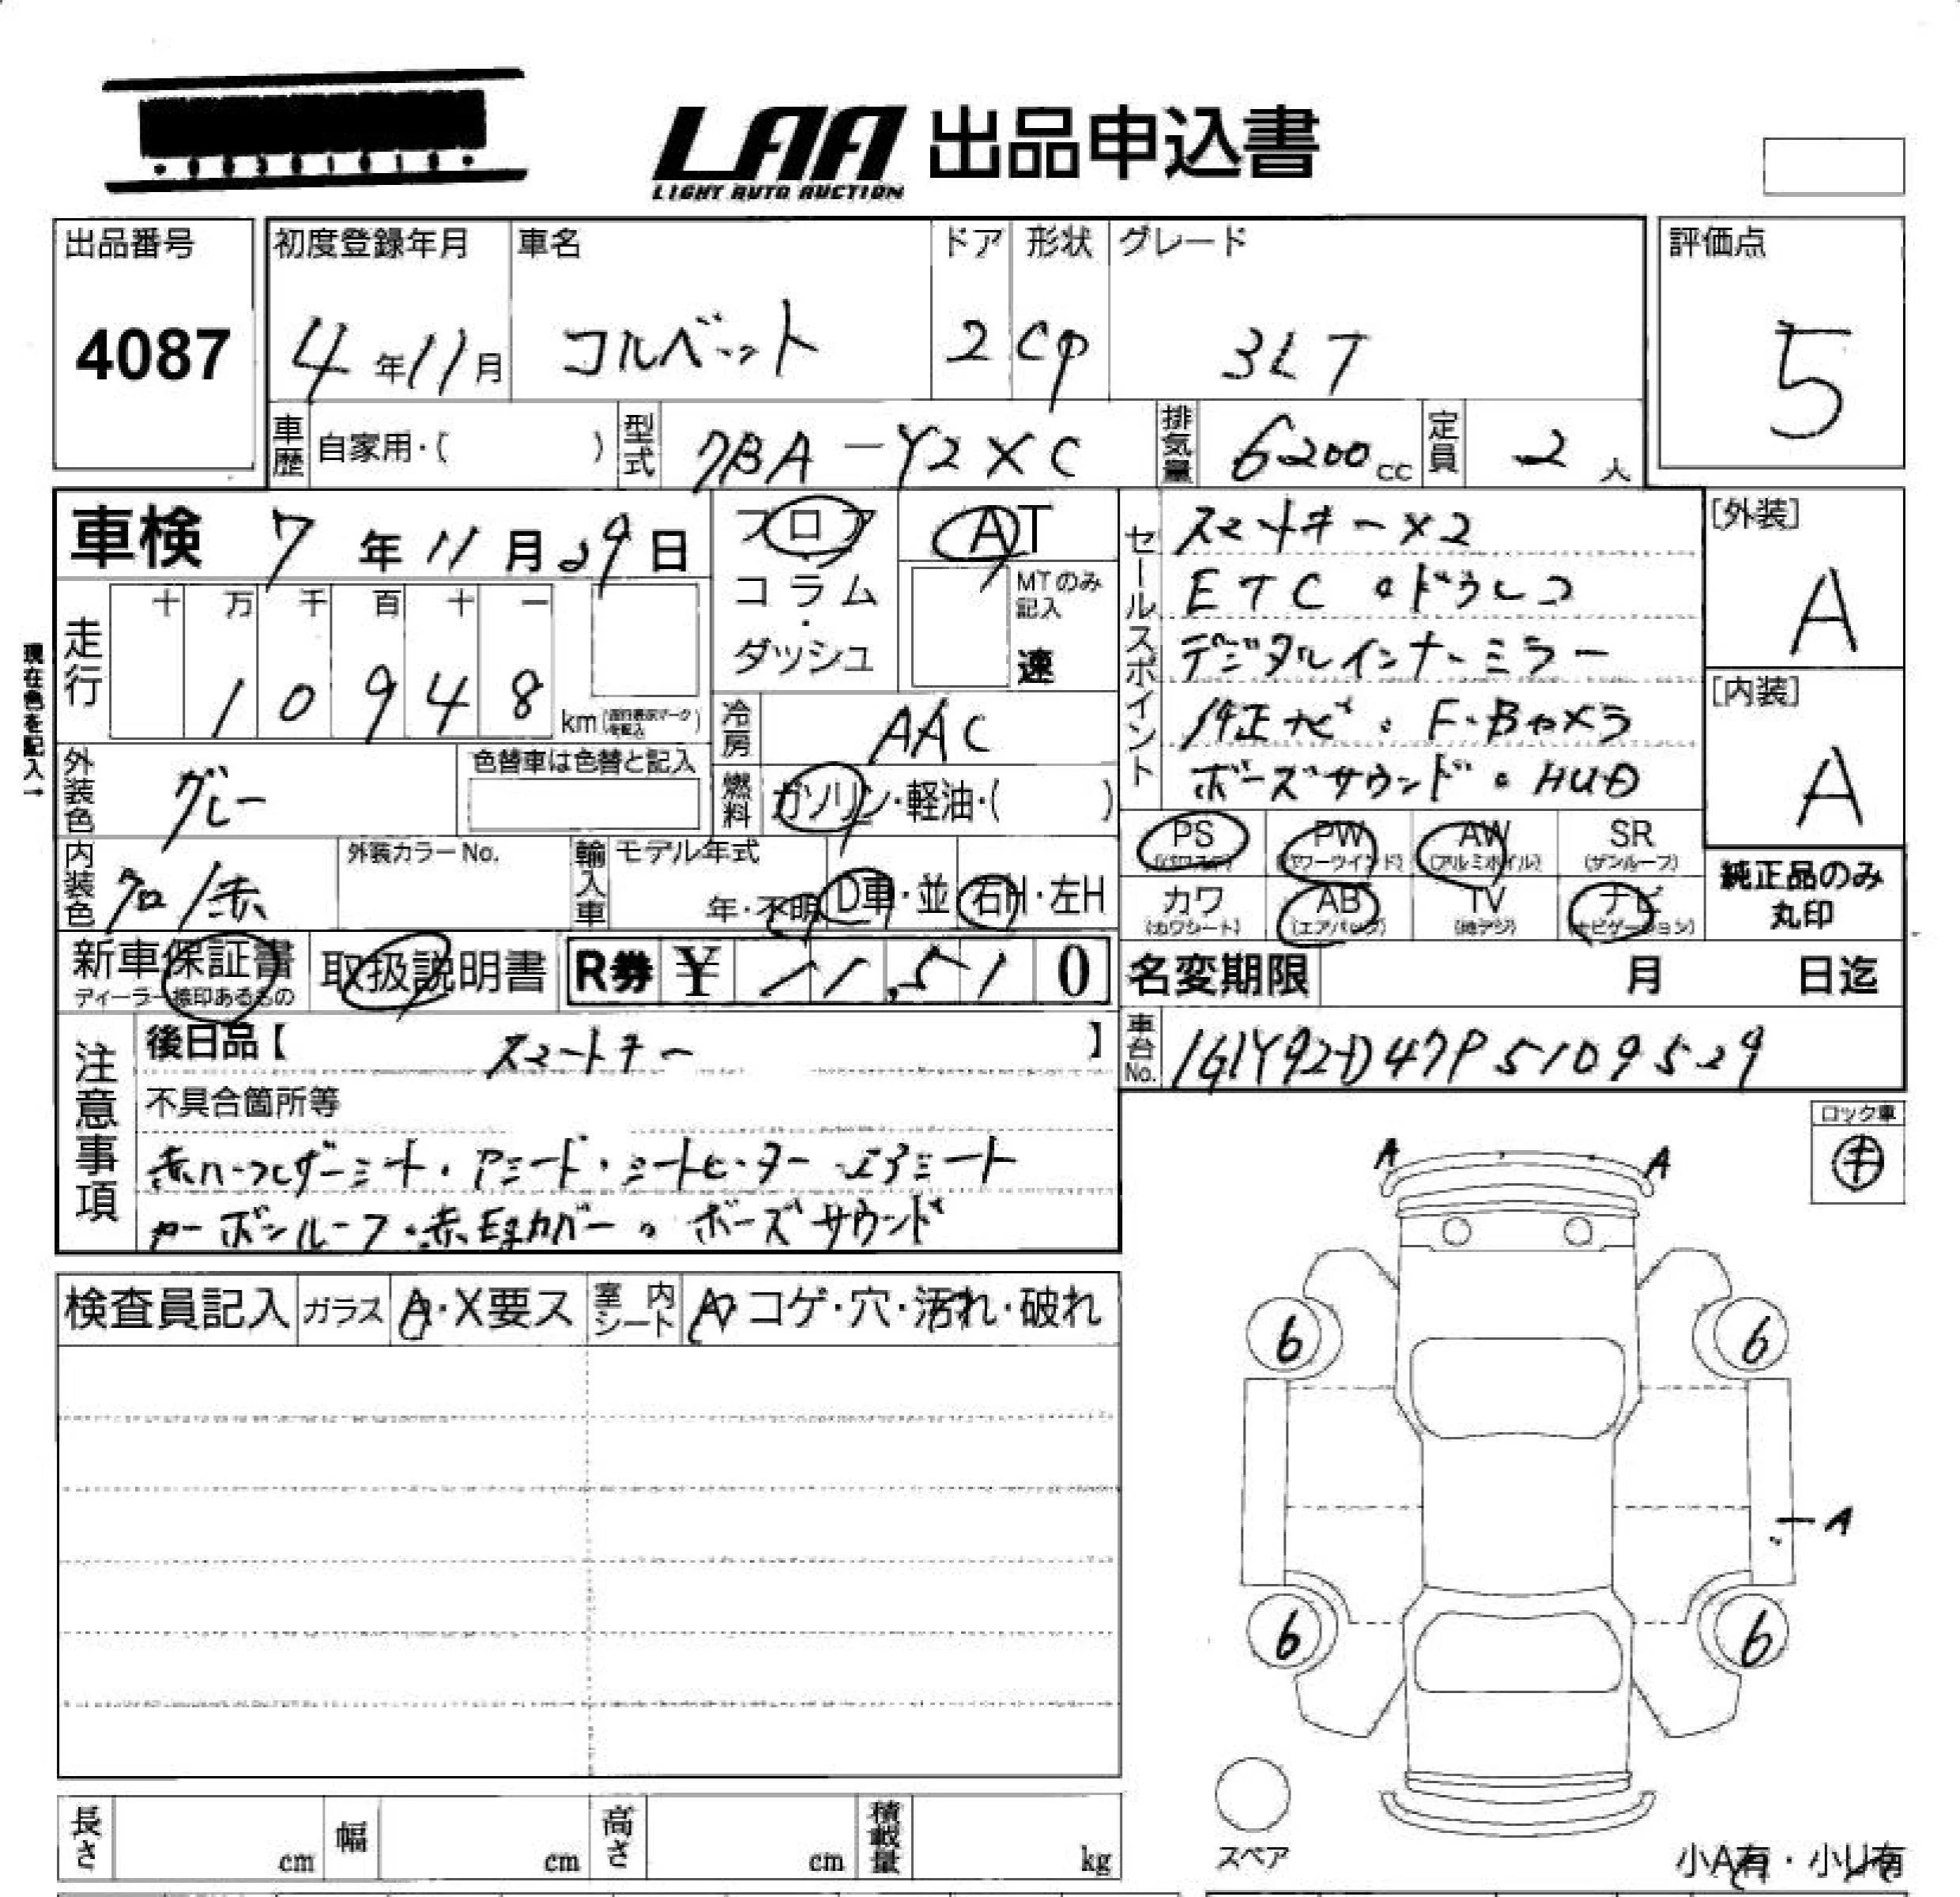 LAA 出品申込書
LIGHT AUTO AUCTION
出品番号
4087
初度登録年月
4年11月
車名
コルベット
ドア
2
形状
CP
グレード
3LT
評価点
5
車歴
自家用・( )
型式
7BA-Y2XC
排気量
6200cc
定員
2人
車検 7年11月29日
フロア
・
コラム
・
ダッシュ
AT
MTのみ記入
速
現在色を記入→
走行
十 万 千 百 十 一
1 0 9 4 8
km
冷房
AAC
外装色
グレー
色替車は色替と記入
燃料
ガソリン・軽油・( )
内装色
クロ/赤
外装カラーNo.
輸入車
モデル年式
年・不明
D車・並
右H・左H
新車保証書
ディーラー捺印あるもの
取扱説明書
R券 ¥ 11,510
セールスポイント
スマートキー×2
ETC・ドラレコ
デジタルインナーミラー
純正ナビ・F・Bカメラ
ボーズサウンド・HUD
PS
(パワステ)
PW
(パワーウインド)
AW
(アルミホイル)
SR
(サンルーフ)
カワ
(カワシート)
AB
(エアバッグ)
TV
(地デジ)
ナビ
(ナビゲーション)
[外装]
A
[内装]
A
純正品のみ
丸印
名変期限 月 日迄
車台No.
1G1Y92D47P5109529
注意事項
後日品【 スマートキー 】
不具合箇所等
赤ハーフレザーシート・Aシート・シートヒーター・エアシート
カーボンルーフ・赤Egカバー・ボーズサウンド
ロック車
キ
検査員記入
ガラス
A・X要ス
室内シート
A・コゲ・穴・汚れ・破れ
A A
6 6
A
6 6
スペア
小A有・小U有
長さ cm
幅 cm
高さ cm
積載量 kg